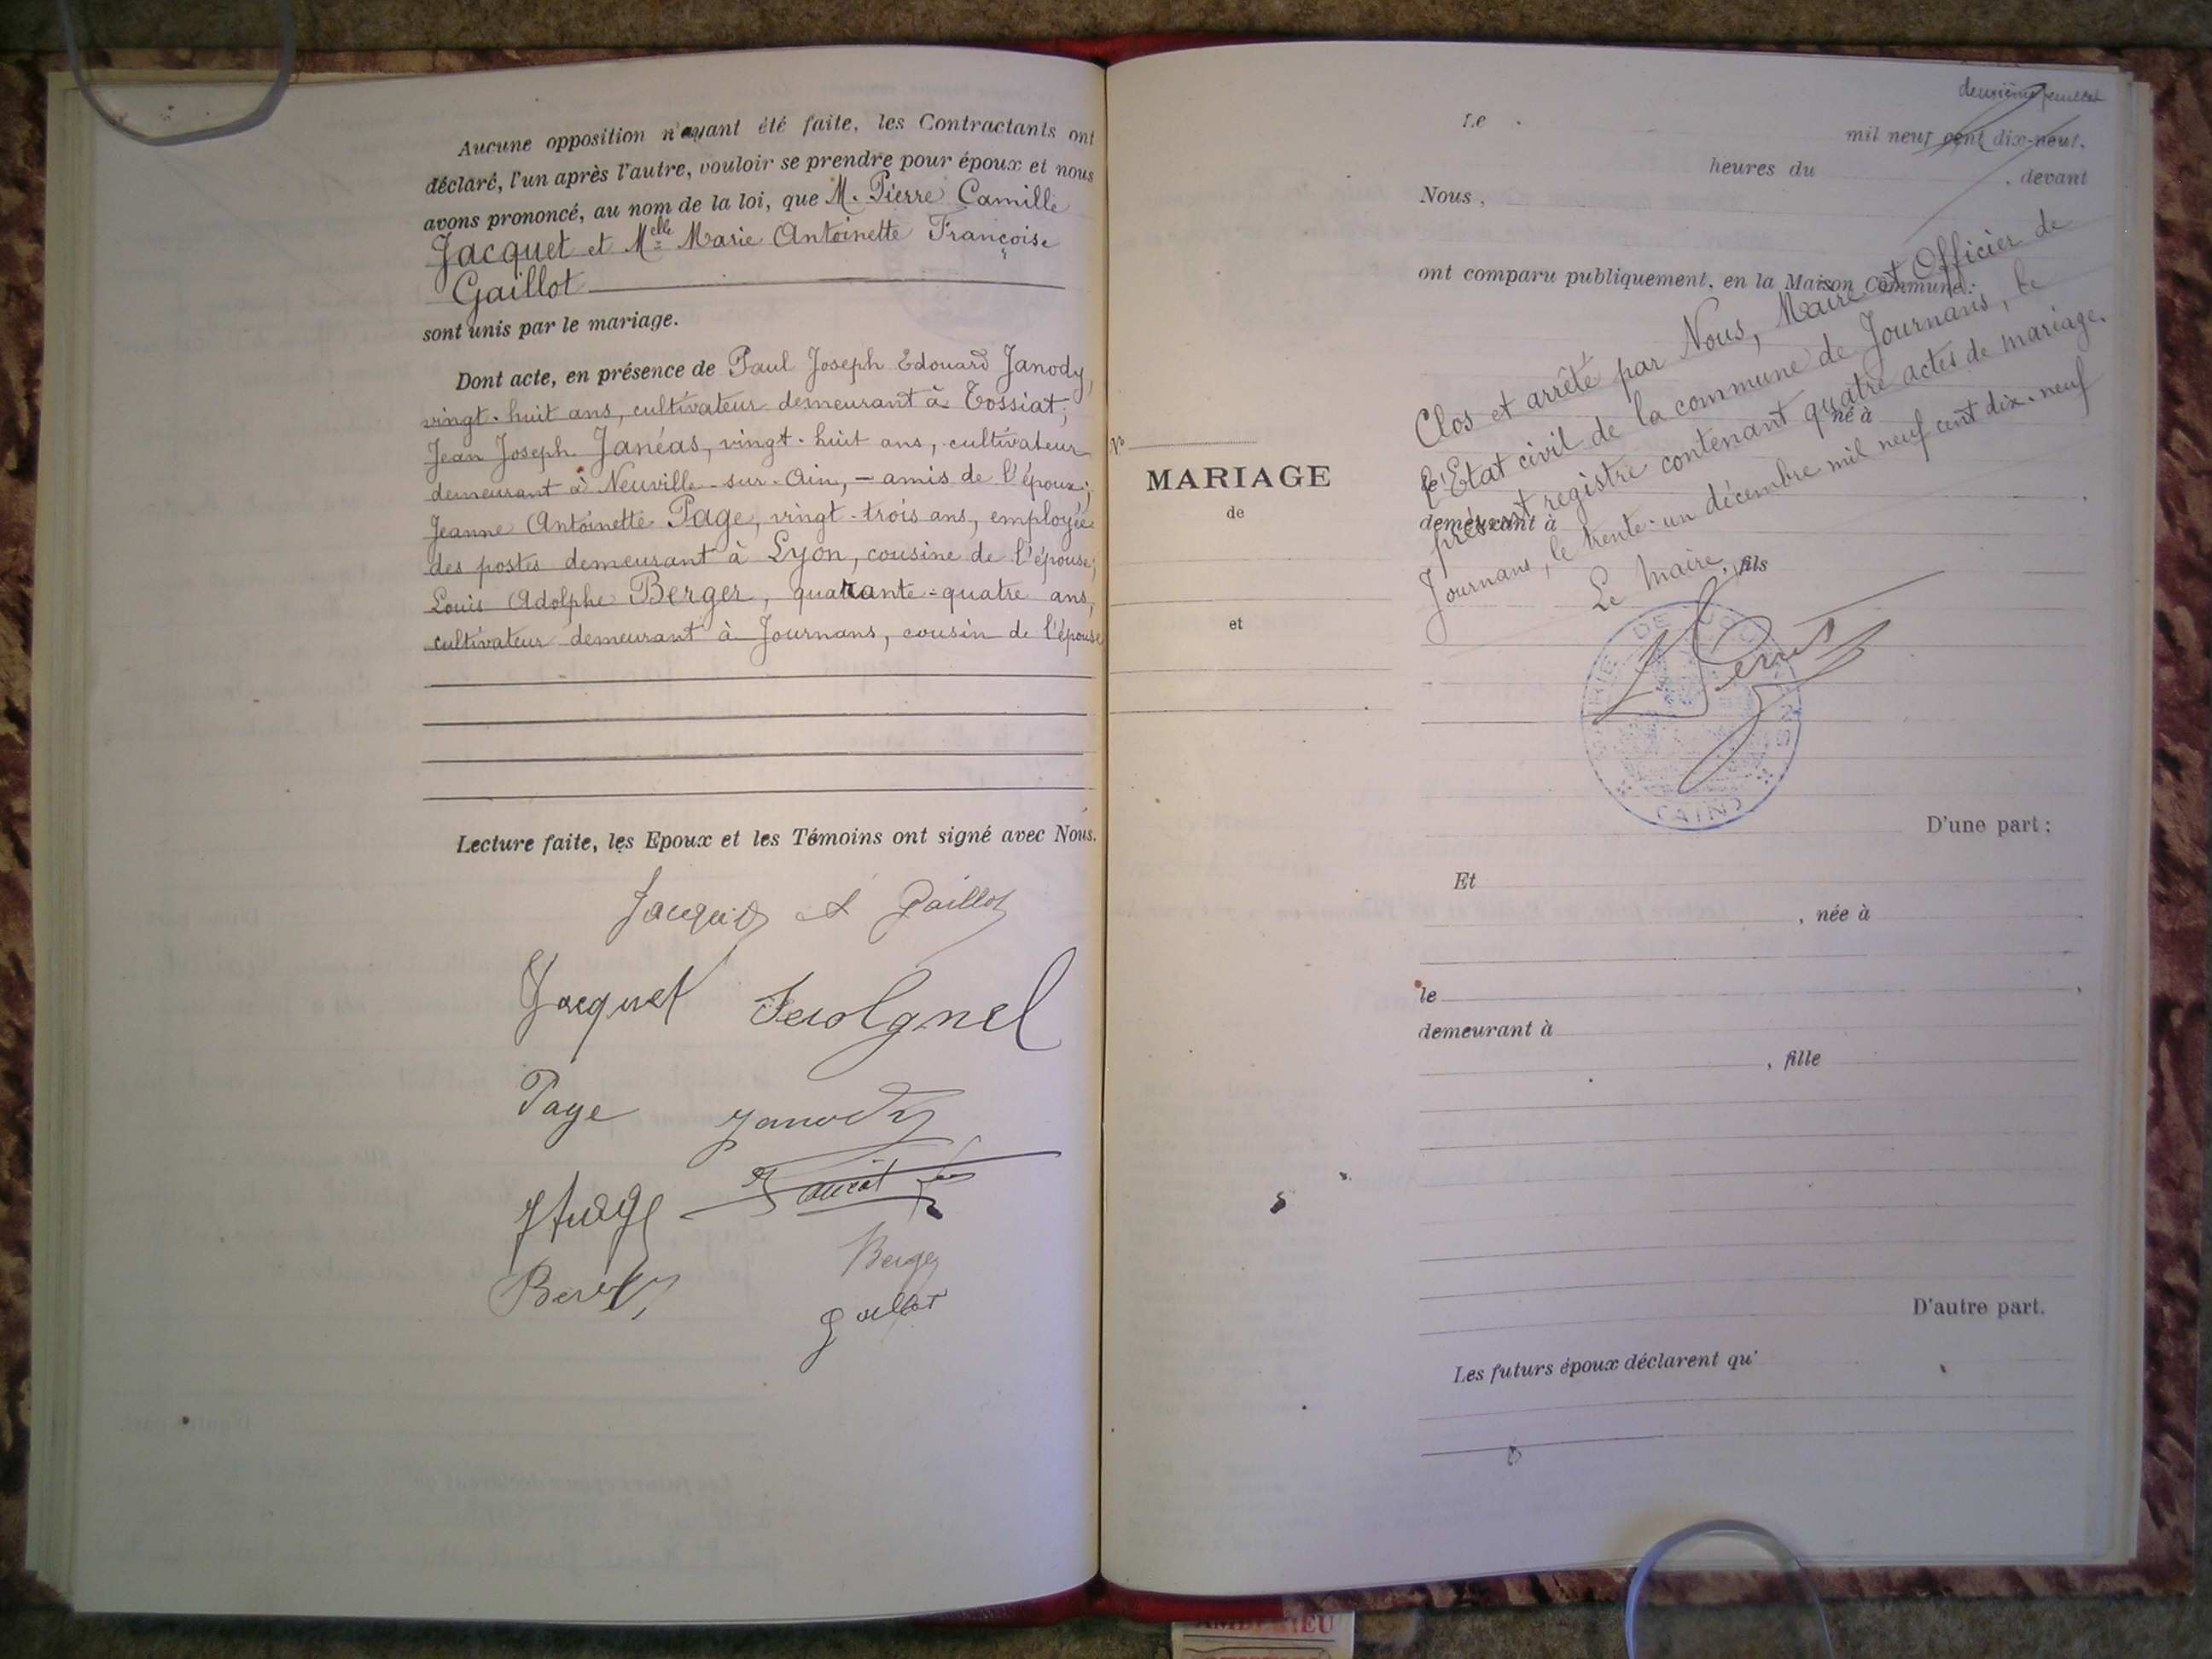 Aucune opposition n'ayant été faite, les Contractants ont
déclaré, l'un après l'autre, vouloir se prendre pour époux et nous
avons prononcé, au nom de la loi, que M. Pierre Camille
Jacquet et Melle Marie Antoinette Françoise
Gaillot
sont unis par le mariage.
Dont acte, en présence de Paul Joseph Edouard Janody,
vingt-huit ans, cultivateur demeurant à Tossiat;
Jean Joseph Janéas, vingt-huit ans, cultivateur
demeurant à Neuville-sur-Ain, - amis de l'époux;
Jeanne Antoinette Page, vingt-trois ans, employée
des postes demeurant à Lyon, cousine de l'épouse;
Louis Adolphe Berger, quarante-quatre ans,
cultivateur demeurant à Journans, cousin de l'épouse
Lecture faite, les Epoux et les Témoins ont signé avec Nous.
Jacquet A Gaillot
Jacquet
Page Janody
Berger
Gaillot
deuxième feuillet
Le
mil neuf cent dix-neuf.
heures du , devant
Nous,
ont comparu publiquement, en la Maison Commune:
Clos et arrêté par Nous, Maire et Officier de
l'Etat civil de la commune de Journans, le
présent registre contenant quatre actes de mariage.
Journans, le trente-un décembre mil neuf cent dix-neuf
Le Maire,
Perret
MAIRIE DE JOURNANS
(AIN)
No
MARIAGE
de
et
né à
le
demeurant à
, fils
D'une part;
Et
, née à
le
demeurant à
, fille
D'autre part.
Les futurs époux déclarent qu'